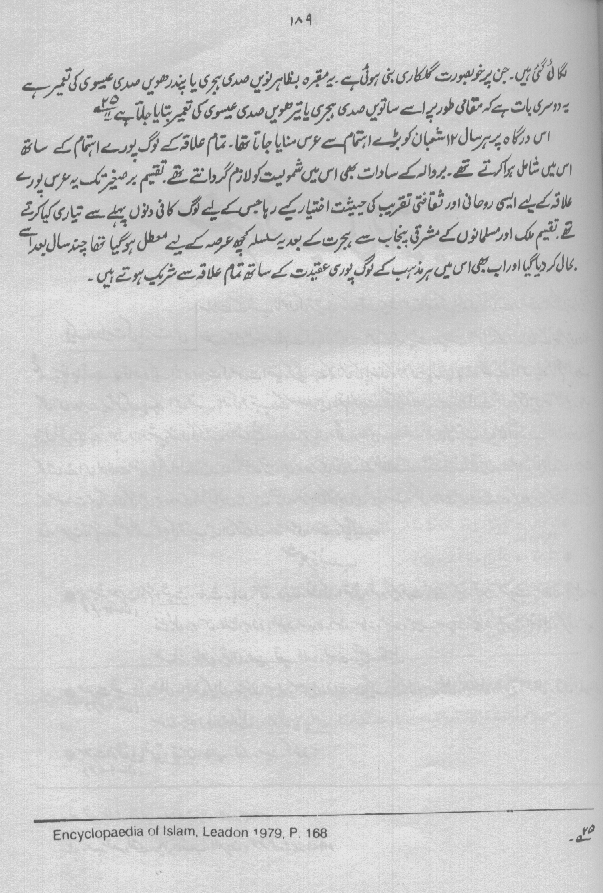 ۱۸۹
لگائی گئی ہیں۔ جن پر خوبصورت گلکاری بنی ہوئی ہے۔ یہ مقبرہ بظاہر نویں صدی ہجری یا پندرھویں صدی عیسوی کی تعمیر ہے
یہ دوسری بات ہے کہ مقامی طور پر اسے ساتویں صدی ہجری یا تیرھویں صدی عیسوی کی تعمیر بتایا جاتا ہے ۲۵
اس درگاہ پر ہر سال ۱۲ شعبان کو بڑے اہتمام سے عرس منایا جاتا تھا۔ تمام علاقہ کے لوگ پورے اہتمام کے ساتھ
اس میں شامل ہوا کرتے تھے۔ بروالہ کے سادات بھی اس میں شمولیت کو لازم گردانتے تھے۔ تقسیم برصغیر تک یہ عرس پورے
علاقہ کے لیے ایسی روحانی اور ثقافتی تقریب کی حیثیت اختیار کیے رہا جس کے لیے لوگ کافی دنوں پہلے سے تیاری کیا کرتے
تھے۔ تقسیم ملک اور مسلمانوں کے مشرقی پنجاب سے ہجرت کے بعد یہ سلسلہ کچھ عرصہ کے لیے معطل ہو گیا تھا چند سال بعد اسے
بحال کر دیا گیا اور اب بھی اس میں ہر مذہب کے لوگ پوری عقیدت کے ساتھ تمام علاقہ سے شریک ہوتے ہیں۔
۲۵ Encyclopaedia of Islam, Leadon 1979, P. 168